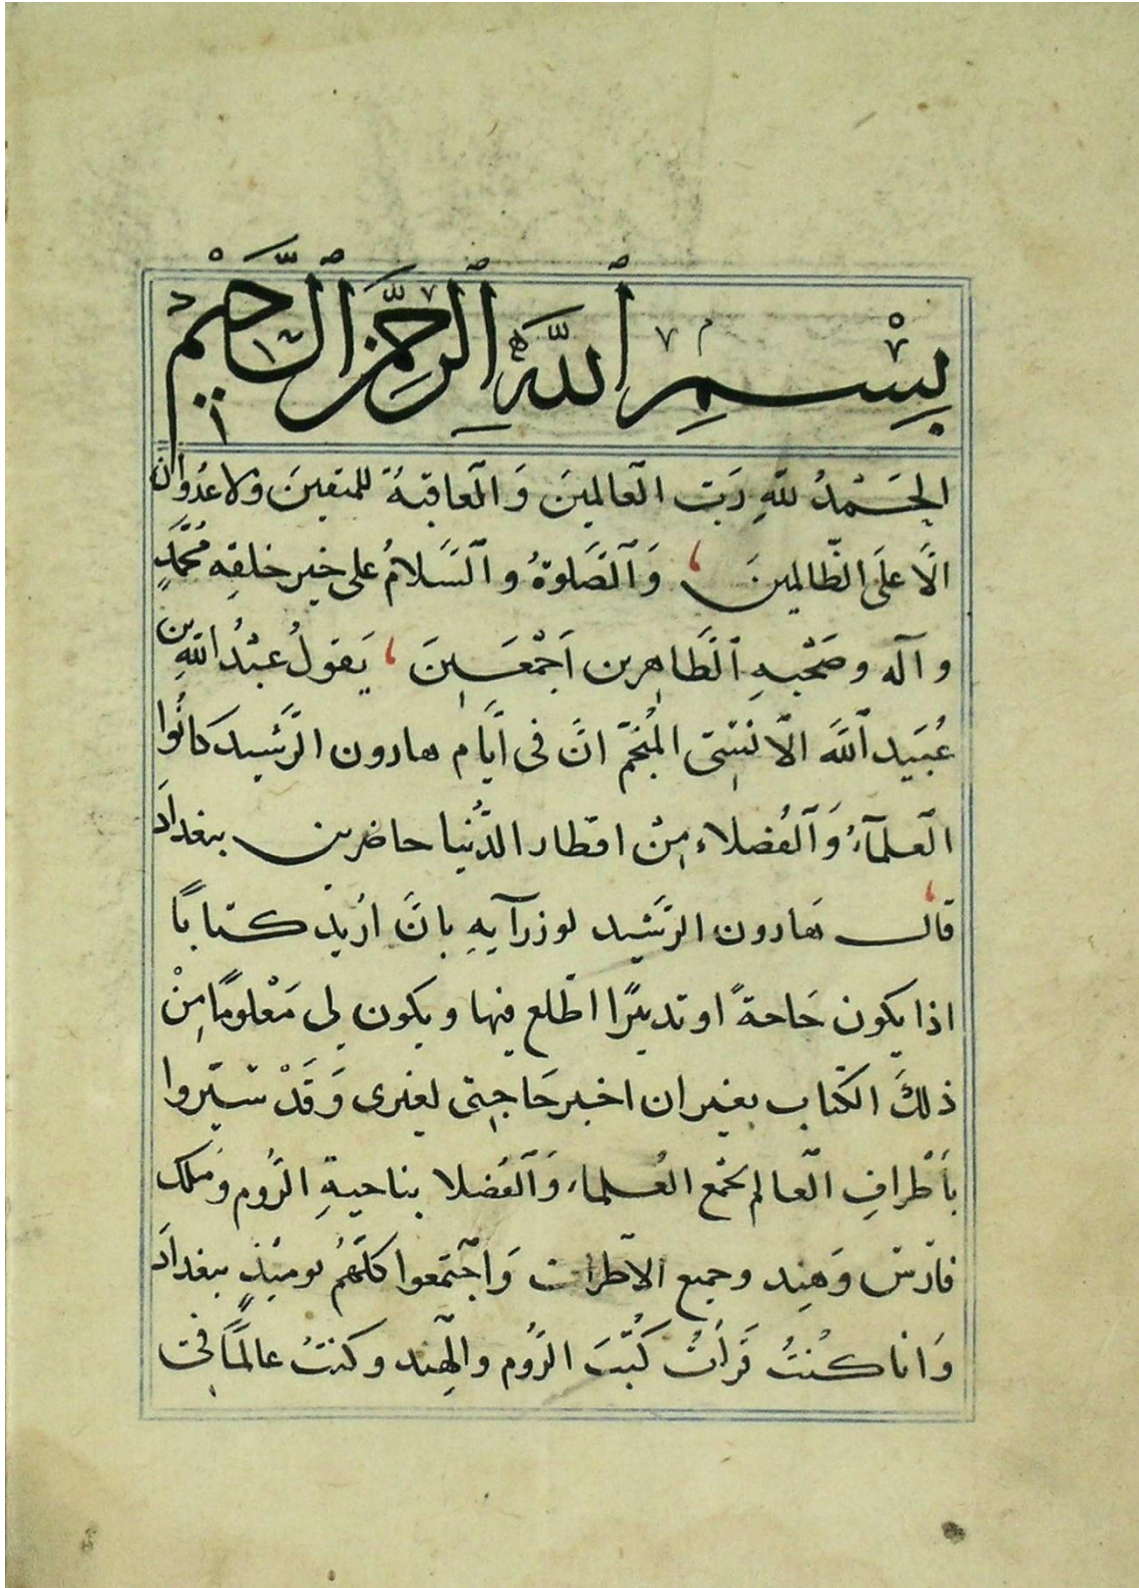 بِسْمِ ٱللَّهِ ٱلرَّحْمَٰنِ ٱلرَّحِيمْ
الحَمْدُ للهِ رَبِّ العَالمينَ وَ العَاقبةُ للمتقينَ ولا عُدْوَان
الَّا عَلَى الظَّالمِينَ وَٱلصَّلوةُ وٱلسَّلامُ على خير خلقِه مُحَمَّدٍ
و آله وصَحْبهِ ٱلطَّاهِرين اَجْمَعِينَ يَقولُ عبْدُ اللهِ بن
عُبَيد ٱللَّه المُنَجّم انَّ فى اَيَّام هارون الرَّشيد كانُوا
العلمآءُ وَٱلفُضلاء مِنْ اقطار الدُّنيا حاضرين ببغدادَ
قال هَارون الرَّشيد لوزرآيهِ بانَّ اُريدُ كتابًا
اذا يكون حَاحةً او تدبيرًا اطّلع فيها و يكون لى مَعْلومًا مِنْ
ذلكَ الكتاب بغير ان اخبر حَاجتى لغيرى وَقَدْ سَيّروا
بأَطْرافِ العالم بجمع العُلماء وَٱلفُضلا بناحيةِ الرُّوم وَمُلك
فَارسَ وَهِند وجميع الاطراف وَاجْتَمَعوا كلّهُم يومئِذٍ ببغدادَ
وَ انا كُنتُ قَرأتُ كُتُبَ الرُّوم والهِند وكنتُ عالمًا فى